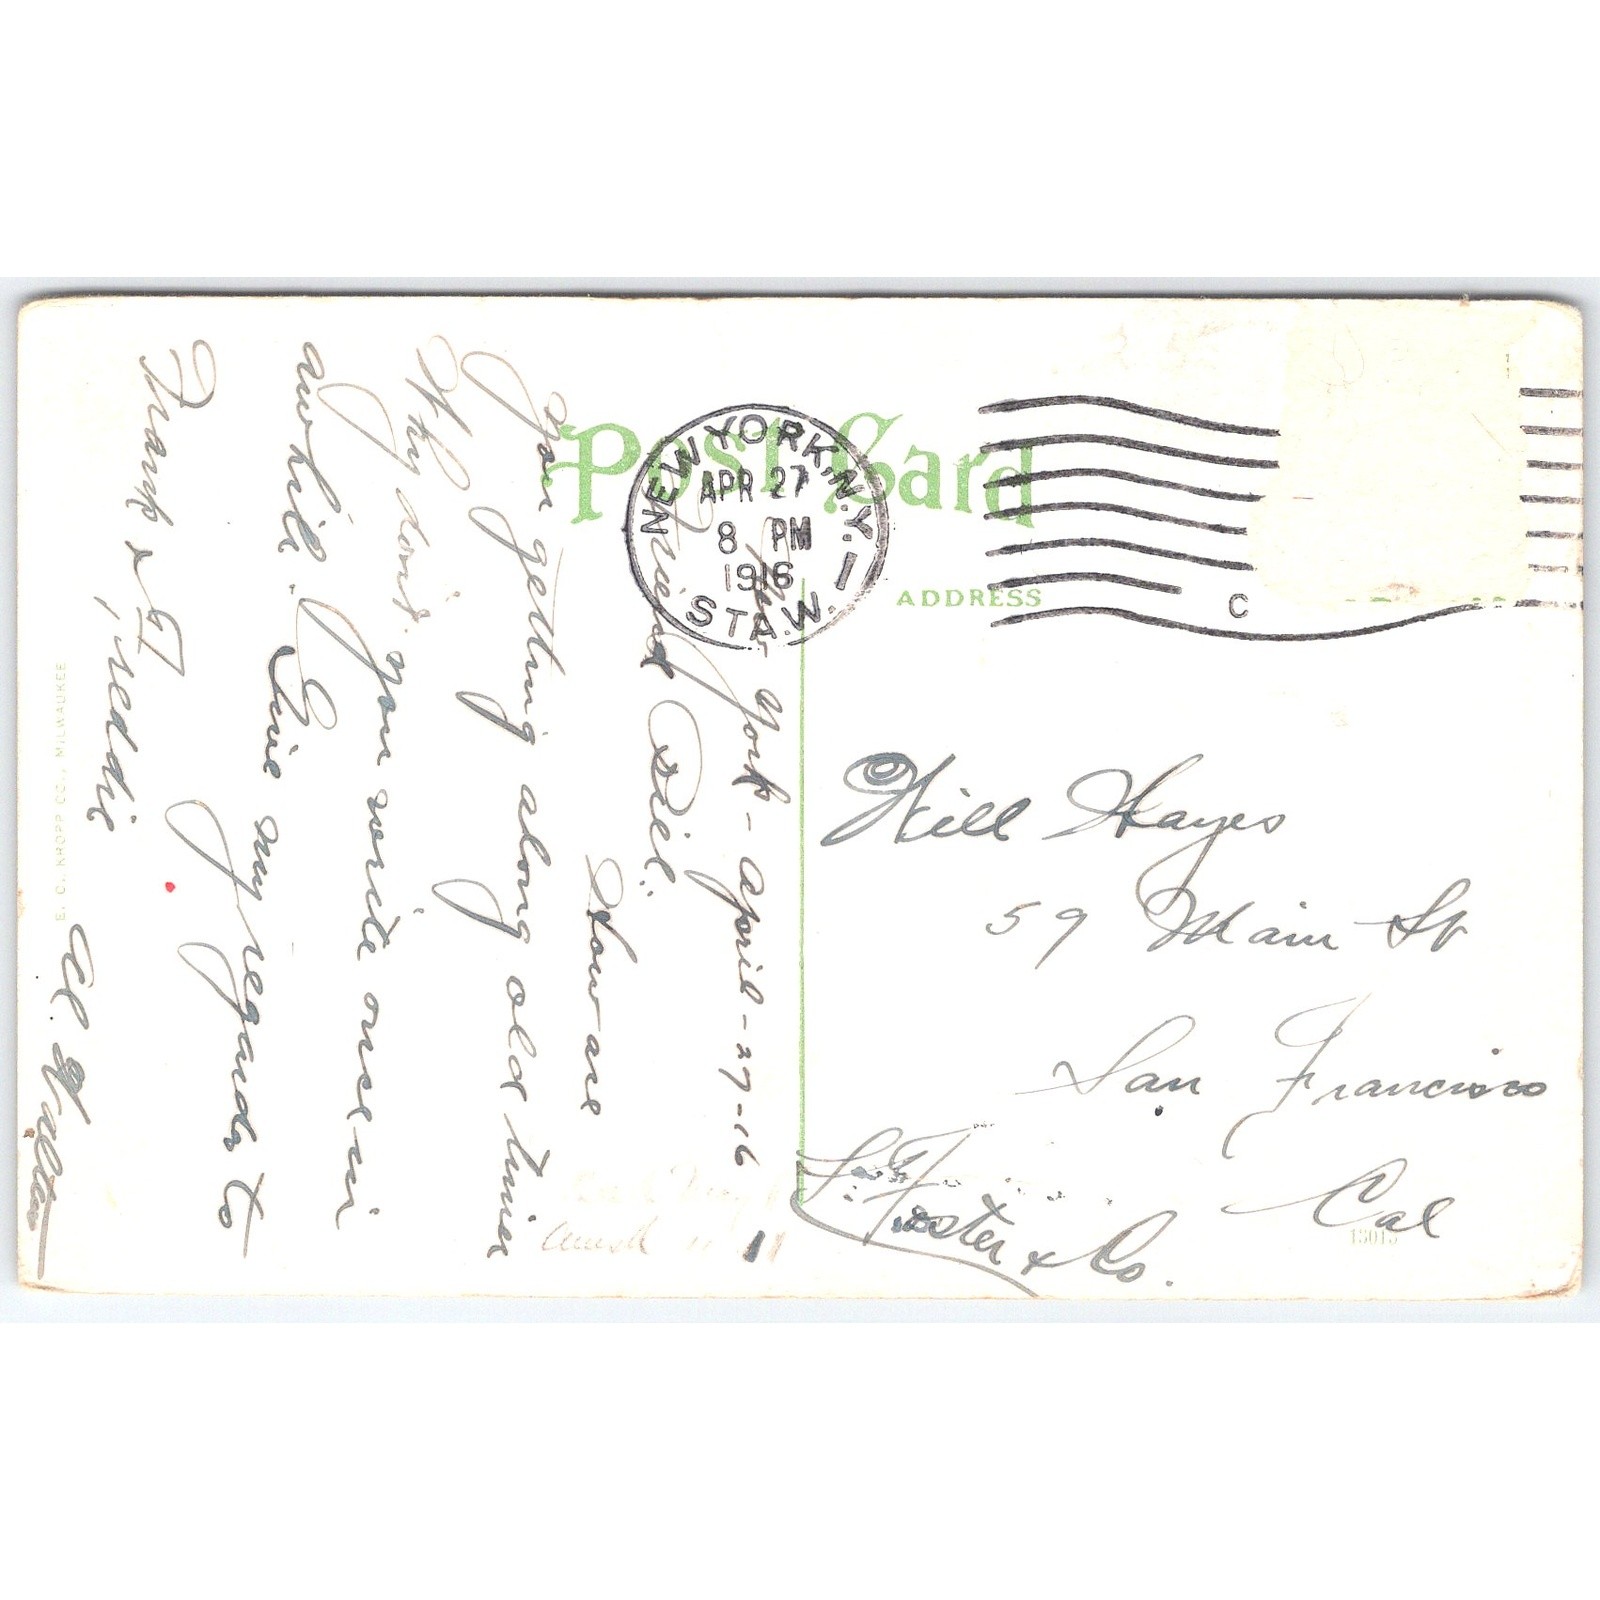 Post Card
NEW YORK, N.Y. 1
APR 27
8 PM
1916
STA. W.
C
ADDRESS
New York - April - 27 - 16
Friend Bill:
How are
you getting along old timer
Why don't you write once in
awhile. Give my regards to
Frank & Freddie
Al. Walters
Will Hayes
59 Main St
San Francisco
Cal
Foster & Co.
13013
E. C. KROPP CO., MILWAUKEE